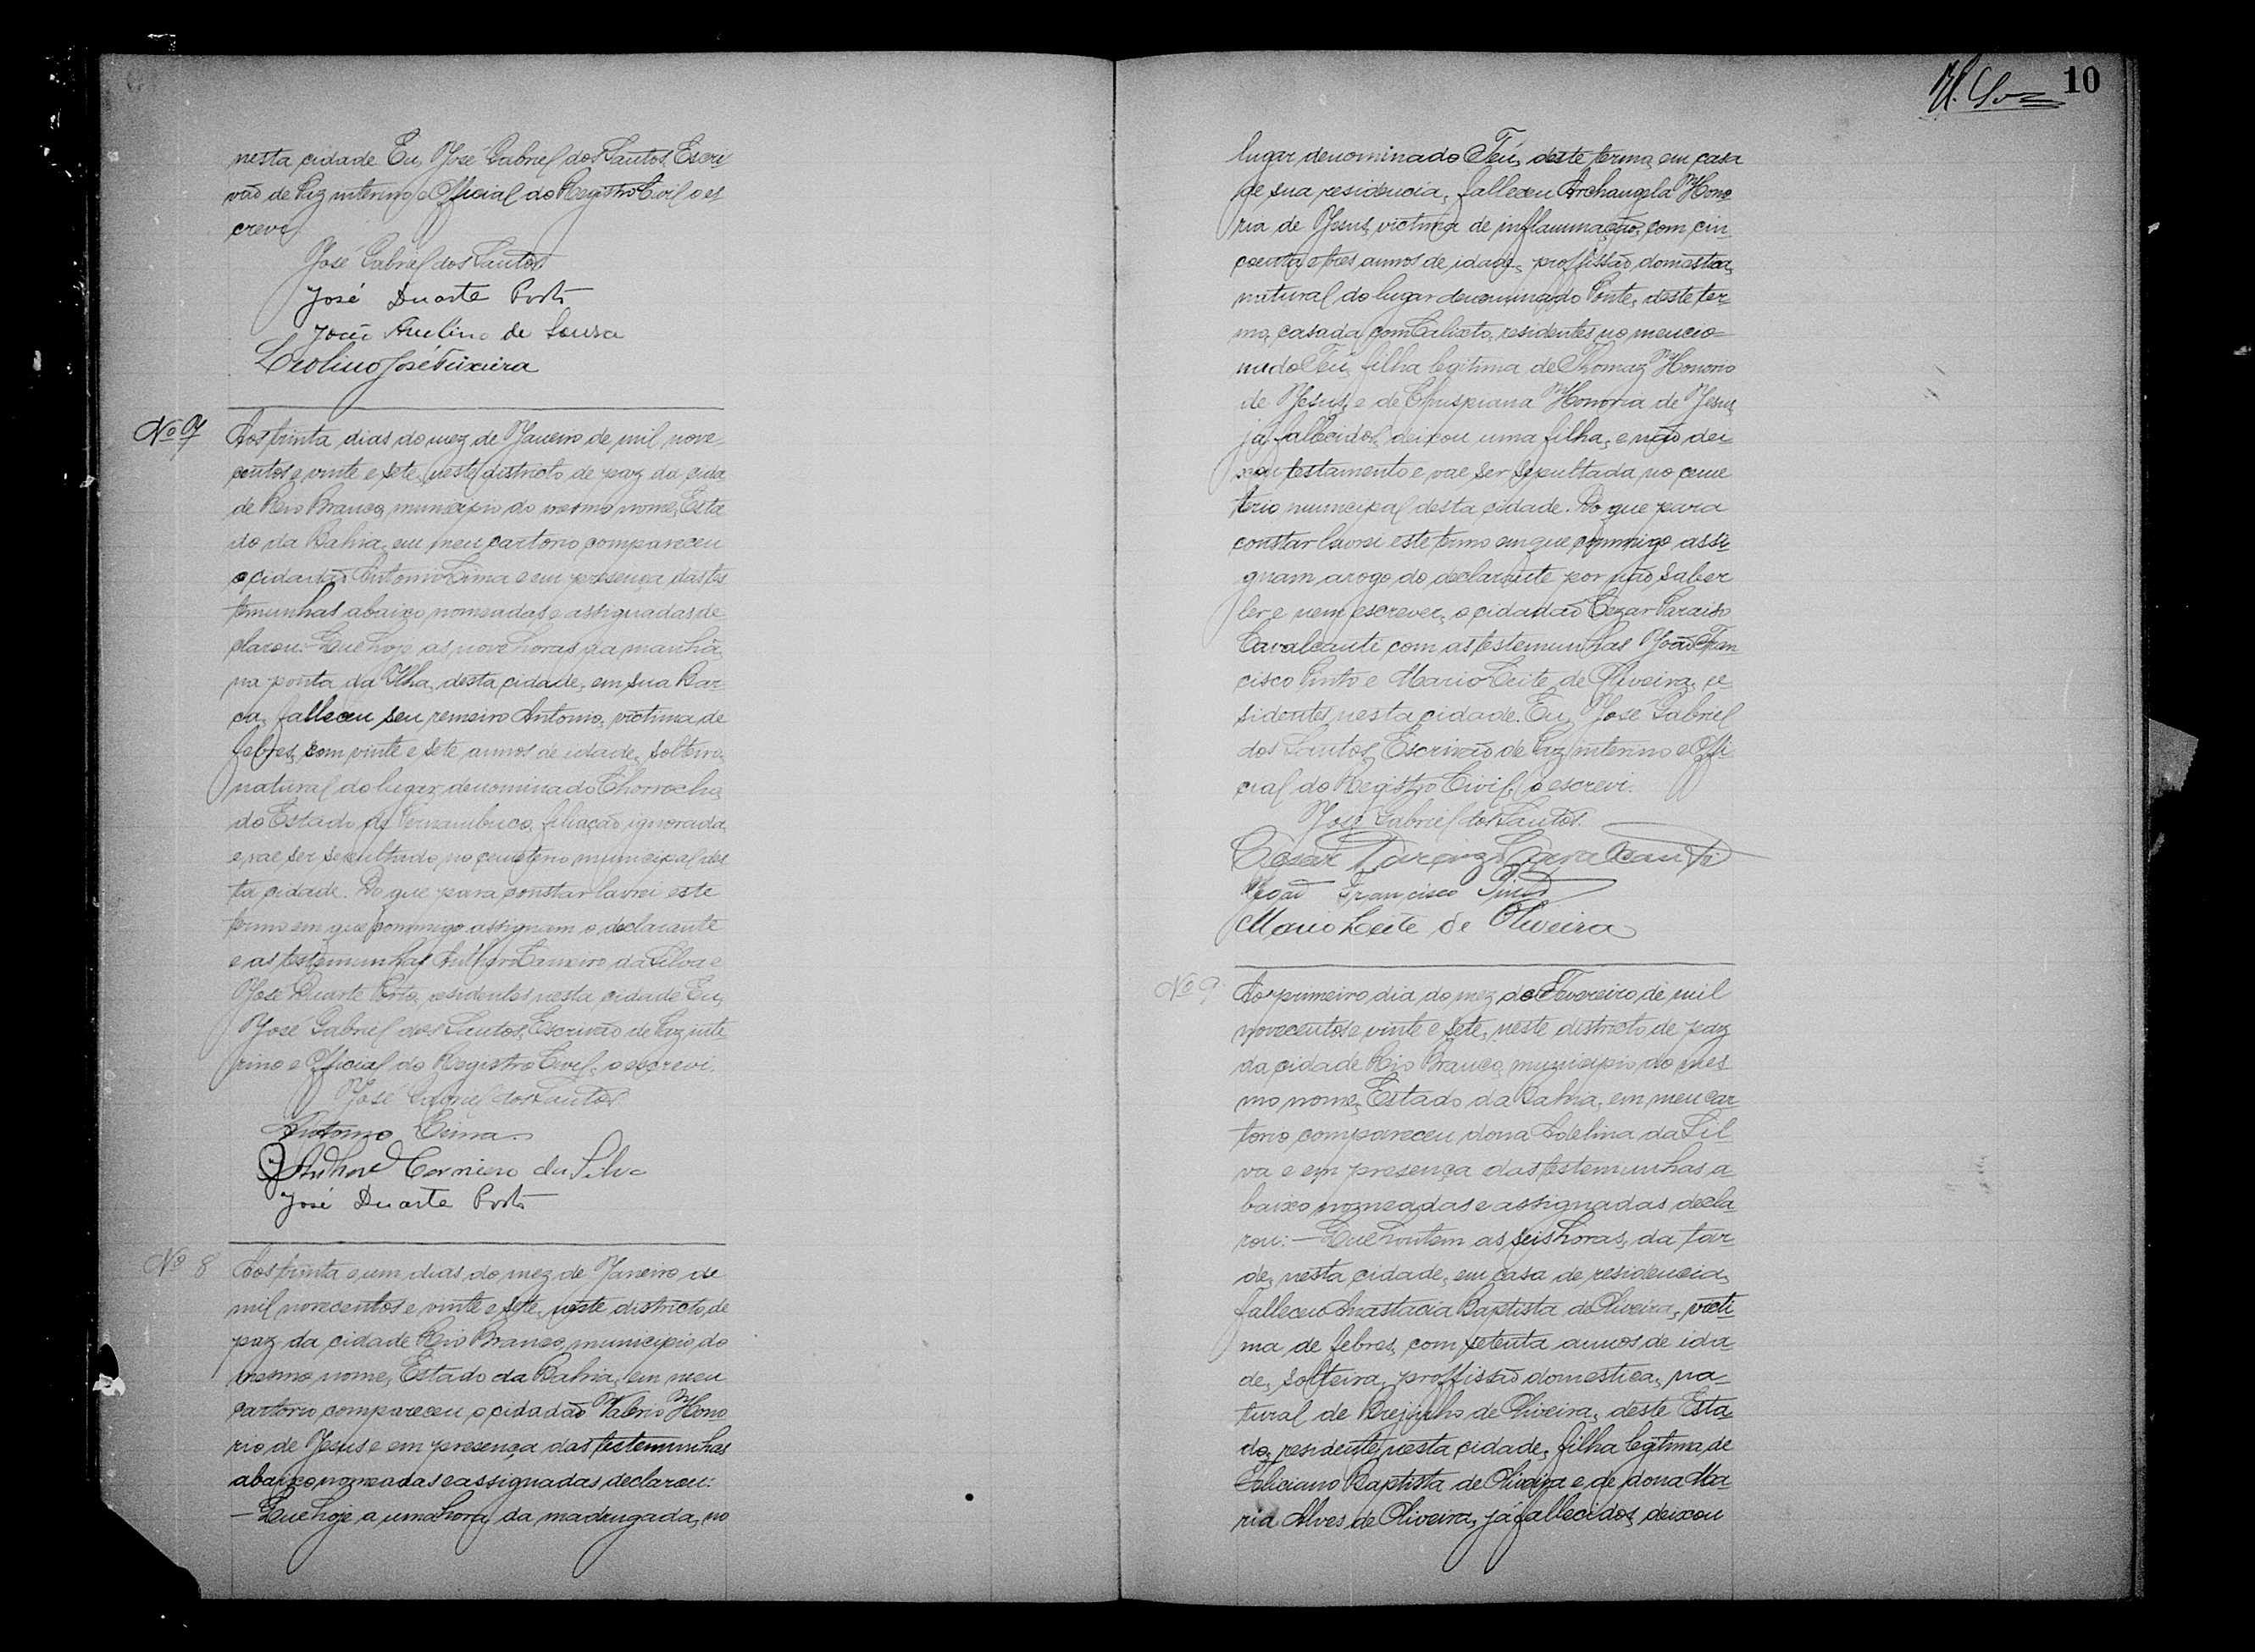 nesta cidade Eu, José Gabriel dos Santos, Escri
vão de Paz interino e Official do Registro Civil o es
crevi
José Gabriel dos Santos.
José Duarte Porto
José Avelino de Sousa
José Teixeira
Nº 7
Aos trinta dias do mez de Janeiro de mil nove-
centos e vinte e sete, neste districto de paz da cida
de Rio Branco, municipio do mesmo nome, Esta
do da Bahia, em meu cartorio compareceu
o cidadão Antonio Lima e em presença das tes
temunhas abaixo nomeadas e assignadas de
clarou:- Que hoje as nove horas da manhã,
na ponta da Ilha, desta cidade, em sua Bar
ca, falleceu seu remeiro Antonio, victima de
febres, com vinte e sete annos de idade, solteiro,
natural do lugar denominado Chorrocho,
do Estado de Pernambuco, filiação ignorada,
e vae ser sepultado no cemiterio municipal des
ta cidade. Do que para constar lavrei este
termo em que commigo assignam o declarante
e as testemunhas Arthur Carneiro da Silva e
José Duarte Porto, residentes nesta cidade Eu,
José Gabriel dos Santos, Escrivão de Paz inte
rino e Official do Registro Civil, o escrevi.
José Gabriel dos Santos
Antonio Lima
Arthur Carneiro da Silva
José Duarte Porto
Nº 8
Aos trinta e um dias do mez de Janeiro de
mil novecentos e vinte e sete, neste districto de
paz da cidade Rio Branco, municipio do
mesmo nome, Estado da Bahia, em meu
cartorio compareceu o cidadão Valerio Hono
rio de Jesus e em presença das testemunhas
abaixo nomeadas e assignadas declarou:
- Que hoje a uma hora da madrugada, no
10
lugar denominado Teú, deste termo, em casa
de sua residencia, falleceu Archangela Hono
ria de Jesus, victima de inflammação, com cin-
coenta e tres annos de idade, proffissão domestica,
natural do lugar denominado Ponte, deste ter-
mo, casada com Calixto, residentes no mencio-
nado Teú, filha legitima de Thomaz Honorio
de Jesus, e de Chrispiana Honoria de Jesus,
já fallecidos, deixou uma filha, e não dei
xou testamento e vae ser sepultada no ceme
terio municipal desta cidade. Do que para
constar lavrei este termo em que commigo assi-
gnam a rogo do declarante por não saber
ler e nem escrever, o cidadão Cezar Paraiso
Cavalcanti com as testemunhas João Fran
cisco Pinto e Mario Leite de Oliveira, re-
sidentes nesta cidade. Eu, José Gabriel
dos Santos, Escrivão de Paz interino e Offi
cial do Registro Civil, o escrevi.
José Gabriel dos Santos.
Cesar Paraizo Cavalcanti
João Francisco Pinto
Mario Leite de Oliveira
Nº 9
Ao primeiro dia do mez de Fevereiro de mil
novecentos e vinte e sete, neste districto de paz
da cidade Rio Branco, municipio do mes
mo nome, Estado da Bahia, em meu car
torio compareceu dona Adelina da Sil-
va e em presença das testemunhas a-
baixo nomeadas e assignadas decla-
rou:- Que hontem as seis horas, da tar-
de, nesta cidade, em casa de residencia,
falleceu Anastacia Baptista de Oliveira, victi-
ma de febres, com setenta annos de ida
de, solteira, proffissão domestica, na-
tural de Brejinho de Oliveira, deste Esta-
do, residente nesta cidade, filha legitima de
Feliciano Baptista de Oliveira e de dona Ma-
ria Alves de Oliveira, já fallecidos, deixou